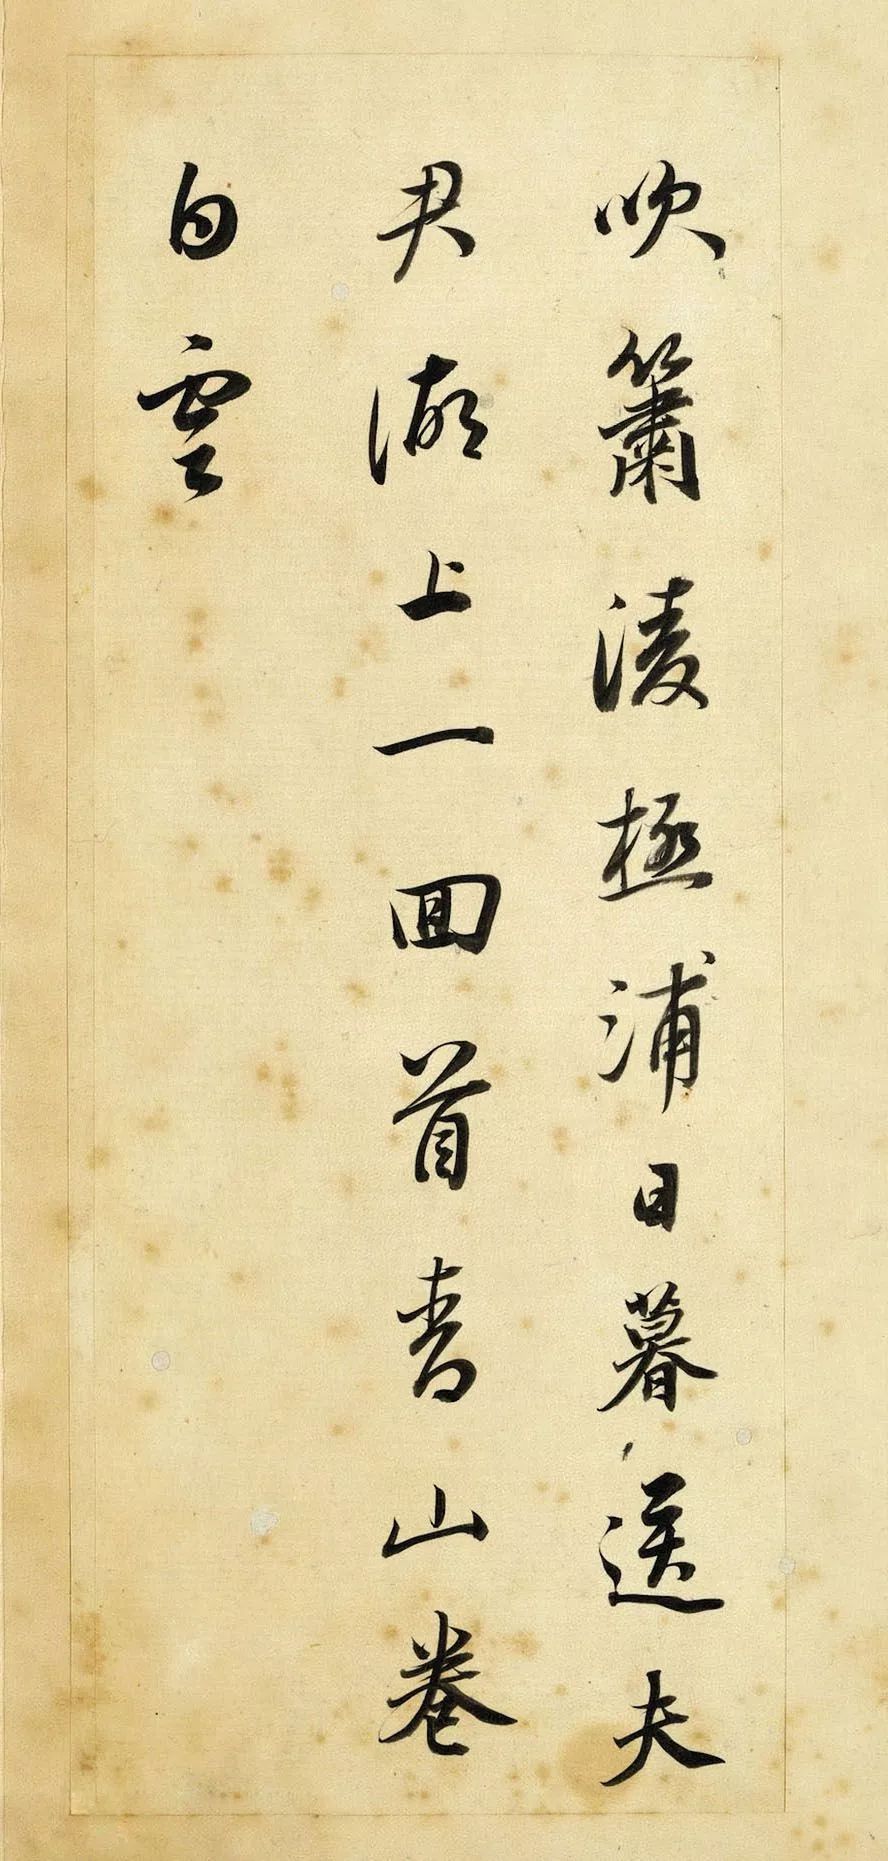 吹簫淩極浦日暮送夫
君湖上一囬首青山卷
白雲